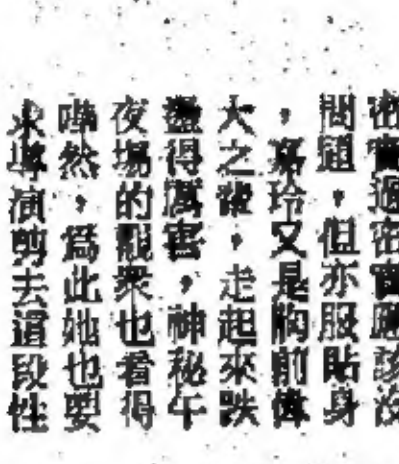 密實過密實應該沒
問題，但亦服貼身
，嘉玲又是胸前偉
大之輩，走起來跌
盪得厲害，神秘午
夜場的觀衆也看得
嘩然，爲此她也要
求導演剪去這段性